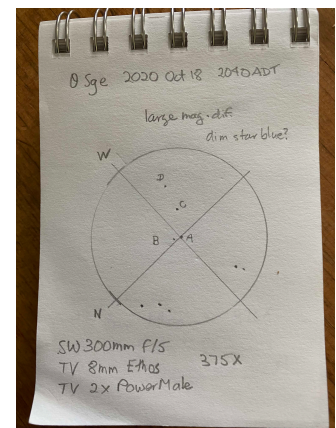 θ Sge 2020 Oct 18 2040ADT
large mag. dif.
dim star blue?
W
D
C
B A
N
SW 300mm F/5
375X
TV 8mm Ethos
TV 2x PowerMate